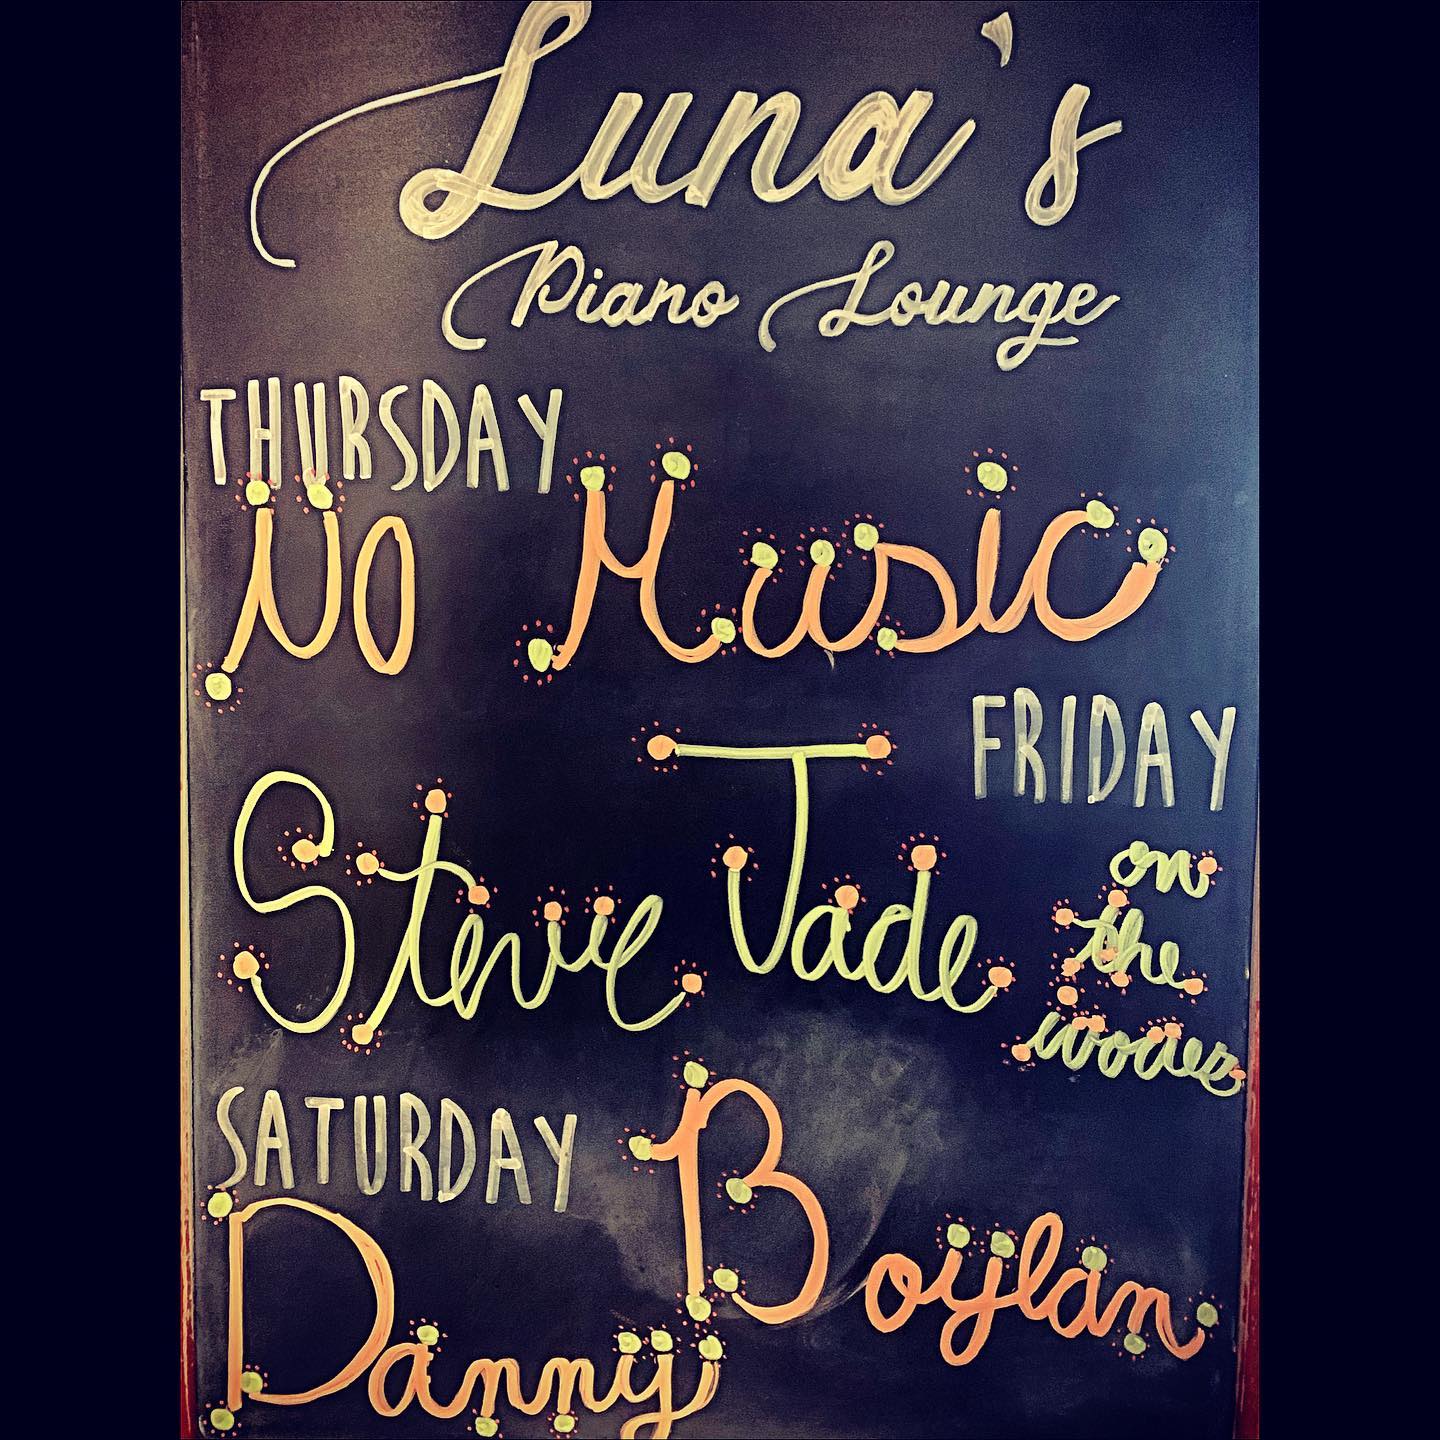 Luna's
Piano Lounge
THURSDAY
No Music
FRIDAY
Stevie Jade
on
the
SATURDAY
Danny Boylan